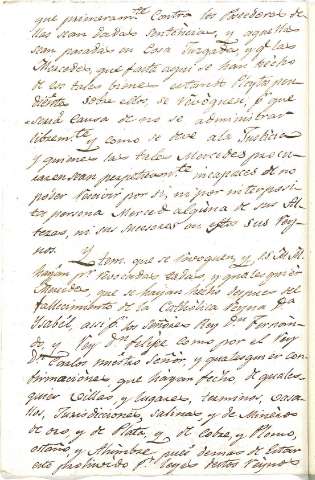 que primeram.te Contra los Poseedores de
ellas sean dadas Sentencias, y aquellas
sean pasadas en Cosa Juzgada, y q.e las
Mercedes, que fasta aqui se han hecho
de los tales bienes estando Pleyto pen-
diente sobre ellos, se revoquen, p.r que
será Causa de no se administrar
librem.te y como se deve a la Justicia
y quienes las tales Mercedes procu-
raren sean perpetuam.te incapaces de no
poder recivir por si, ni por interposi-
ta persona Merced alguna de sus Al-
tezas, ni sus subcesores en estos sus Rey-
nos. Y tem. que se revoquen, y SS. M. M.
hayan p.r revocadas todas, y qualesquier
Mercedes, que se hayan hecho despues del
fallecimiento de la Catholica Reyna D.a
Isabel, assi p.r los Señores Rey D.n Fernan-
do, y Rey D.n Felipe como por el Rey
D.n Carlos nuestro Señor, y qualesquier con-
firmaciones que hayan fecho, de quales-
quier Villas, y lugares, terminos, Vasa-
llos, Jurisdicciones, Salinas, y de Mineros
de oro, y de Plata, y de Cobre, y Plomo,
estaño, y Alumbre, pues demas de estar
esto prohivido p.r leyes destos Reynos